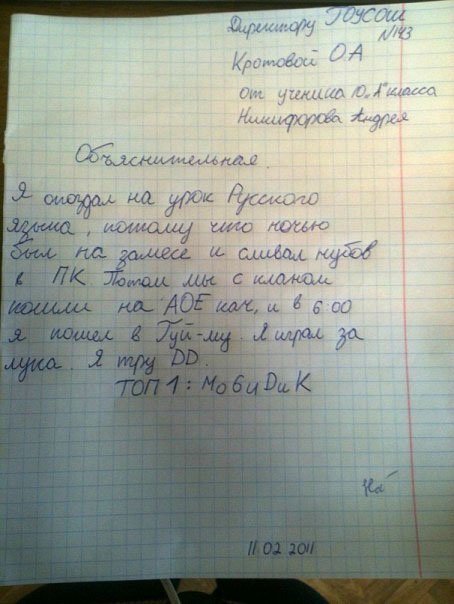 Директору ГОУСОШ
№143
Кротовой О.А
от ученика 10 „А" класса
Никифорова Андрея
Объяснительная.
Я опоздал на урок Русского
языка, потому что ночью
был на замесе и сливал нубов
в ПК. Потом мы с кланом
пошли на AOE кач, и в 6:00
я пошел в Гуй-му. Я играл за
лука. Я тру DD.
ТОП 1: МоБиDиК
11 02 2011